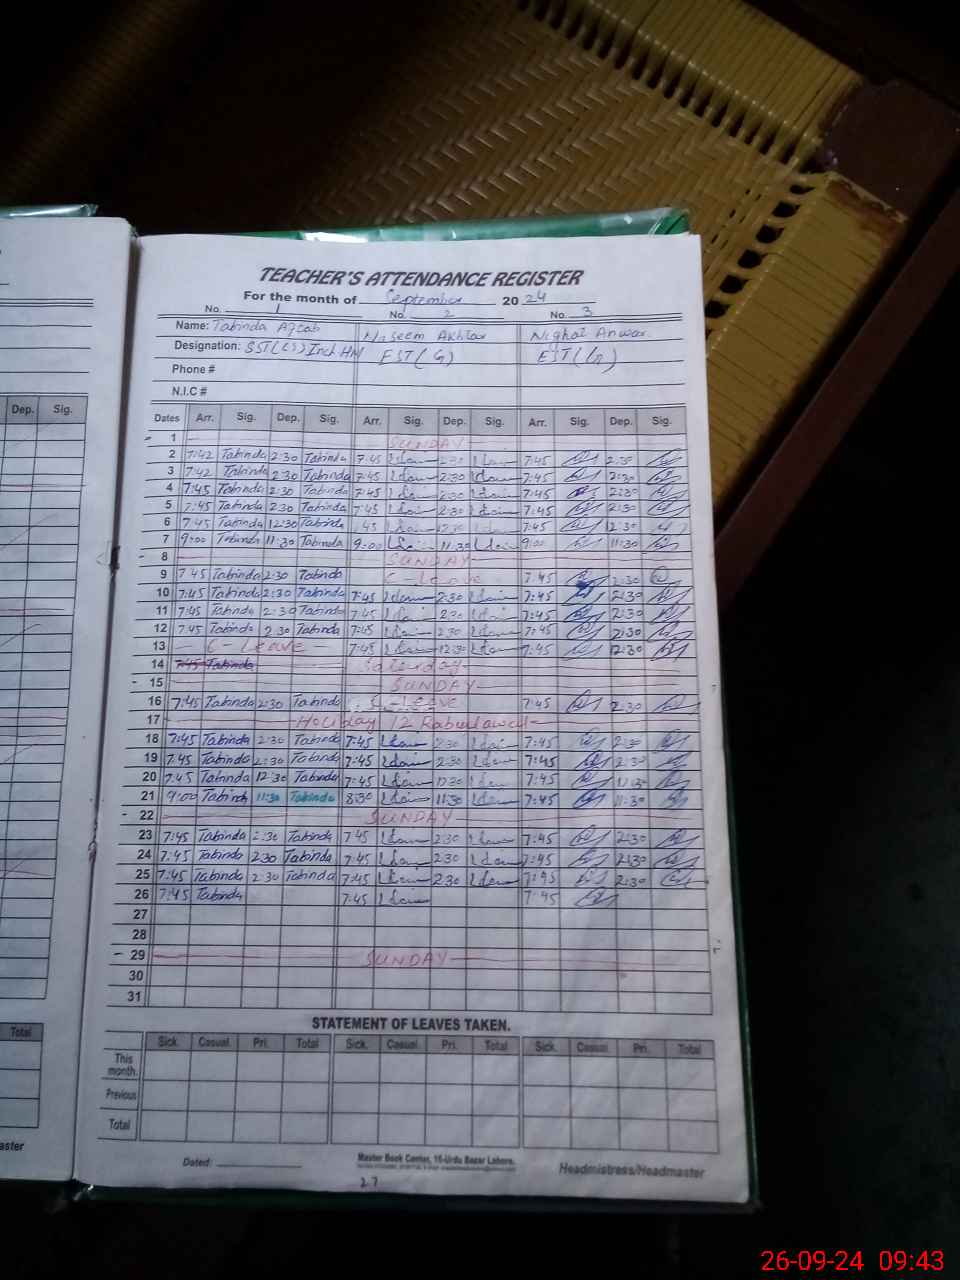 TEACHER'S ATTENDANCE REGISTER
For the month of September 2024
No. 1 No. 2 No. 3
Name: Tabinda Aftab Naseem Akhtar Nighat Anwar
Designation: SST(CS) Inch HM EST(G) EST(G)
Phone #
N.I.C #
Dep. Sig.
Dates Arr. Sig. Dep. Sig. Arr. Sig. Dep. Sig. Arr. Sig. Dep. Sig.
1 SUNDAY
2 7:42 Tabinda 2:30 Tabinda 7:45 2:30 7:45 2:30
3 7:42 Tabinda 2:30 Tabinda 7:45 2:30 7:45 2:30
4 7:45 Tabinda 2:30 Tabinda 7:45 2:30 7:45 2:30
5 7:45 Tabinda 2:30 Tabinda 7:45 2:30 7:45 2:30
6 7:45 Tabinda 12:30 Tabinda 7:45 12:30 7:45 12:30
7 9:00 Tabinda 11:30 Tabinda 9:00 11:30 9:00 11:30
8 SUNDAY
9 7:45 Tabinda 2:30 Tabinda C-Leave 7:45 2:30
10 7:45 Tabinda 2:30 Tabinda 7:45 2:30 7:45 2:30
11 7:45 Tabinda 2:30 Tabinda 7:45 2:30 7:45 2:30
12 7:45 Tabinda 2:30 Tabinda 7:45 2:30 7:45 2:30
13 C-Leave 7:45 12:30 7:45 12:30
14 7:45 Tabinda Saturday
15 SUNDAY
16 7:45 Tabinda 2:30 Tabinda C-Leave 7:45 2:30
17 Holiday 12 Rabiulawal
18 7:45 Tabinda 2:30 Tabinda 7:45 2:30 7:45 2:30
19 7:45 Tabinda 2:30 Tabinda 7:45 2:30 7:45 2:30
20 7:45 Tabinda 12:30 Tabinda 7:45 12:30 7:45 12:30
21 9:00 Tabinda 11:30 Tabinda 8:30 11:30 7:45 11:30
22 SUNDAY
23 7:45 Tabinda 2:30 Tabinda 7:45 2:30 7:45 2:30
24 7:45 Tabinda 2:30 Tabinda 7:45 2:30 7:45 2:30
25 7:45 Tabinda 2:30 Tabinda 7:45 2:30 7:45 2:30
26 7:45 Tabinda 7:45 7:45
27
28
29 SUNDAY
30
31
STATEMENT OF LEAVES TAKEN.
Total
Sick. Casual. Pri. Total Sick. Casual. Pri. Total Sick. Casual. Pri. Total
This month.
Previous
Total
aster
Dated:
Master Book Center, 16-Urdu Bazar Lahore.
Headmistress/Headmaster
27
26-09-24 09:43